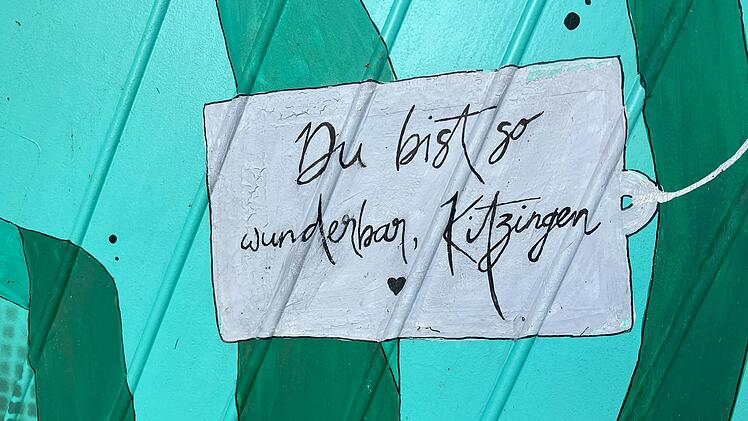 Du bist so
wunderbar, Kitzingen
♥